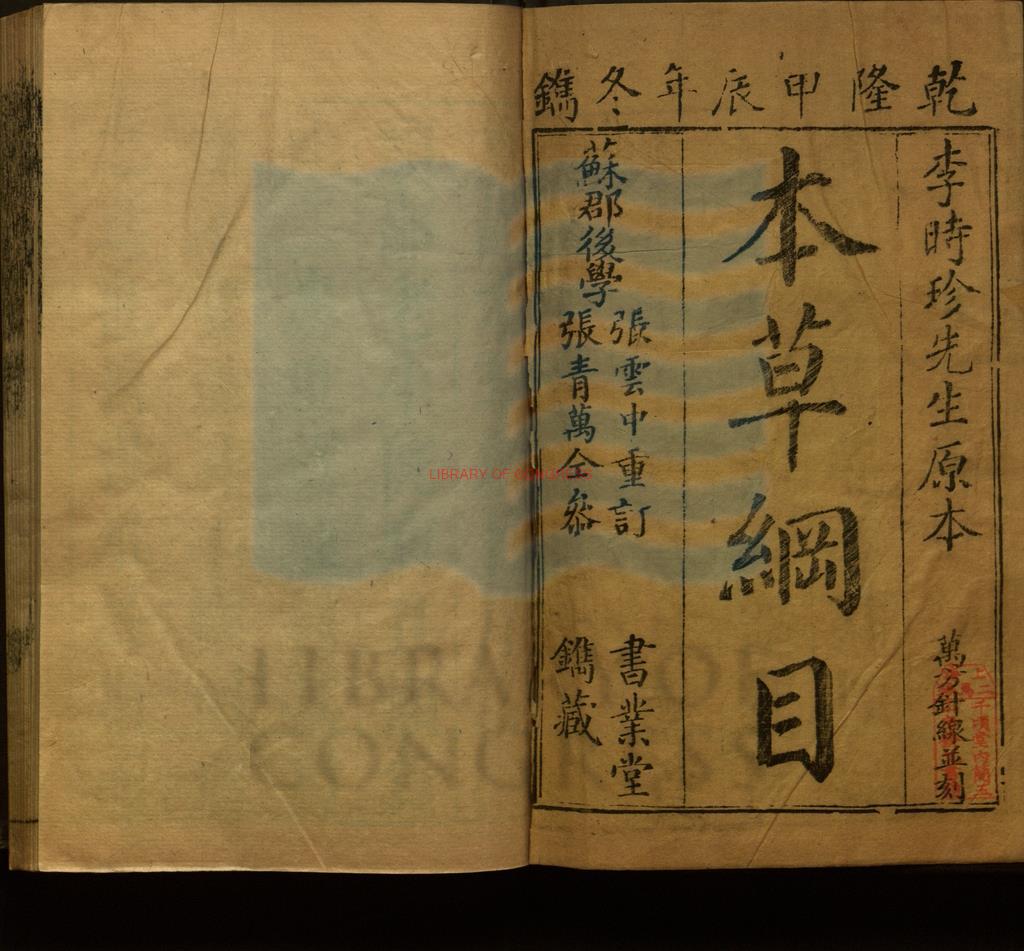 乾隆甲辰年冬鐫
李時珍先生原本
萬方針線並刻
本草綱目
蘇郡後學
張雲中重訂
張青萬仝參
書業堂
鐫藏
LIBRARY OF CONGRESS